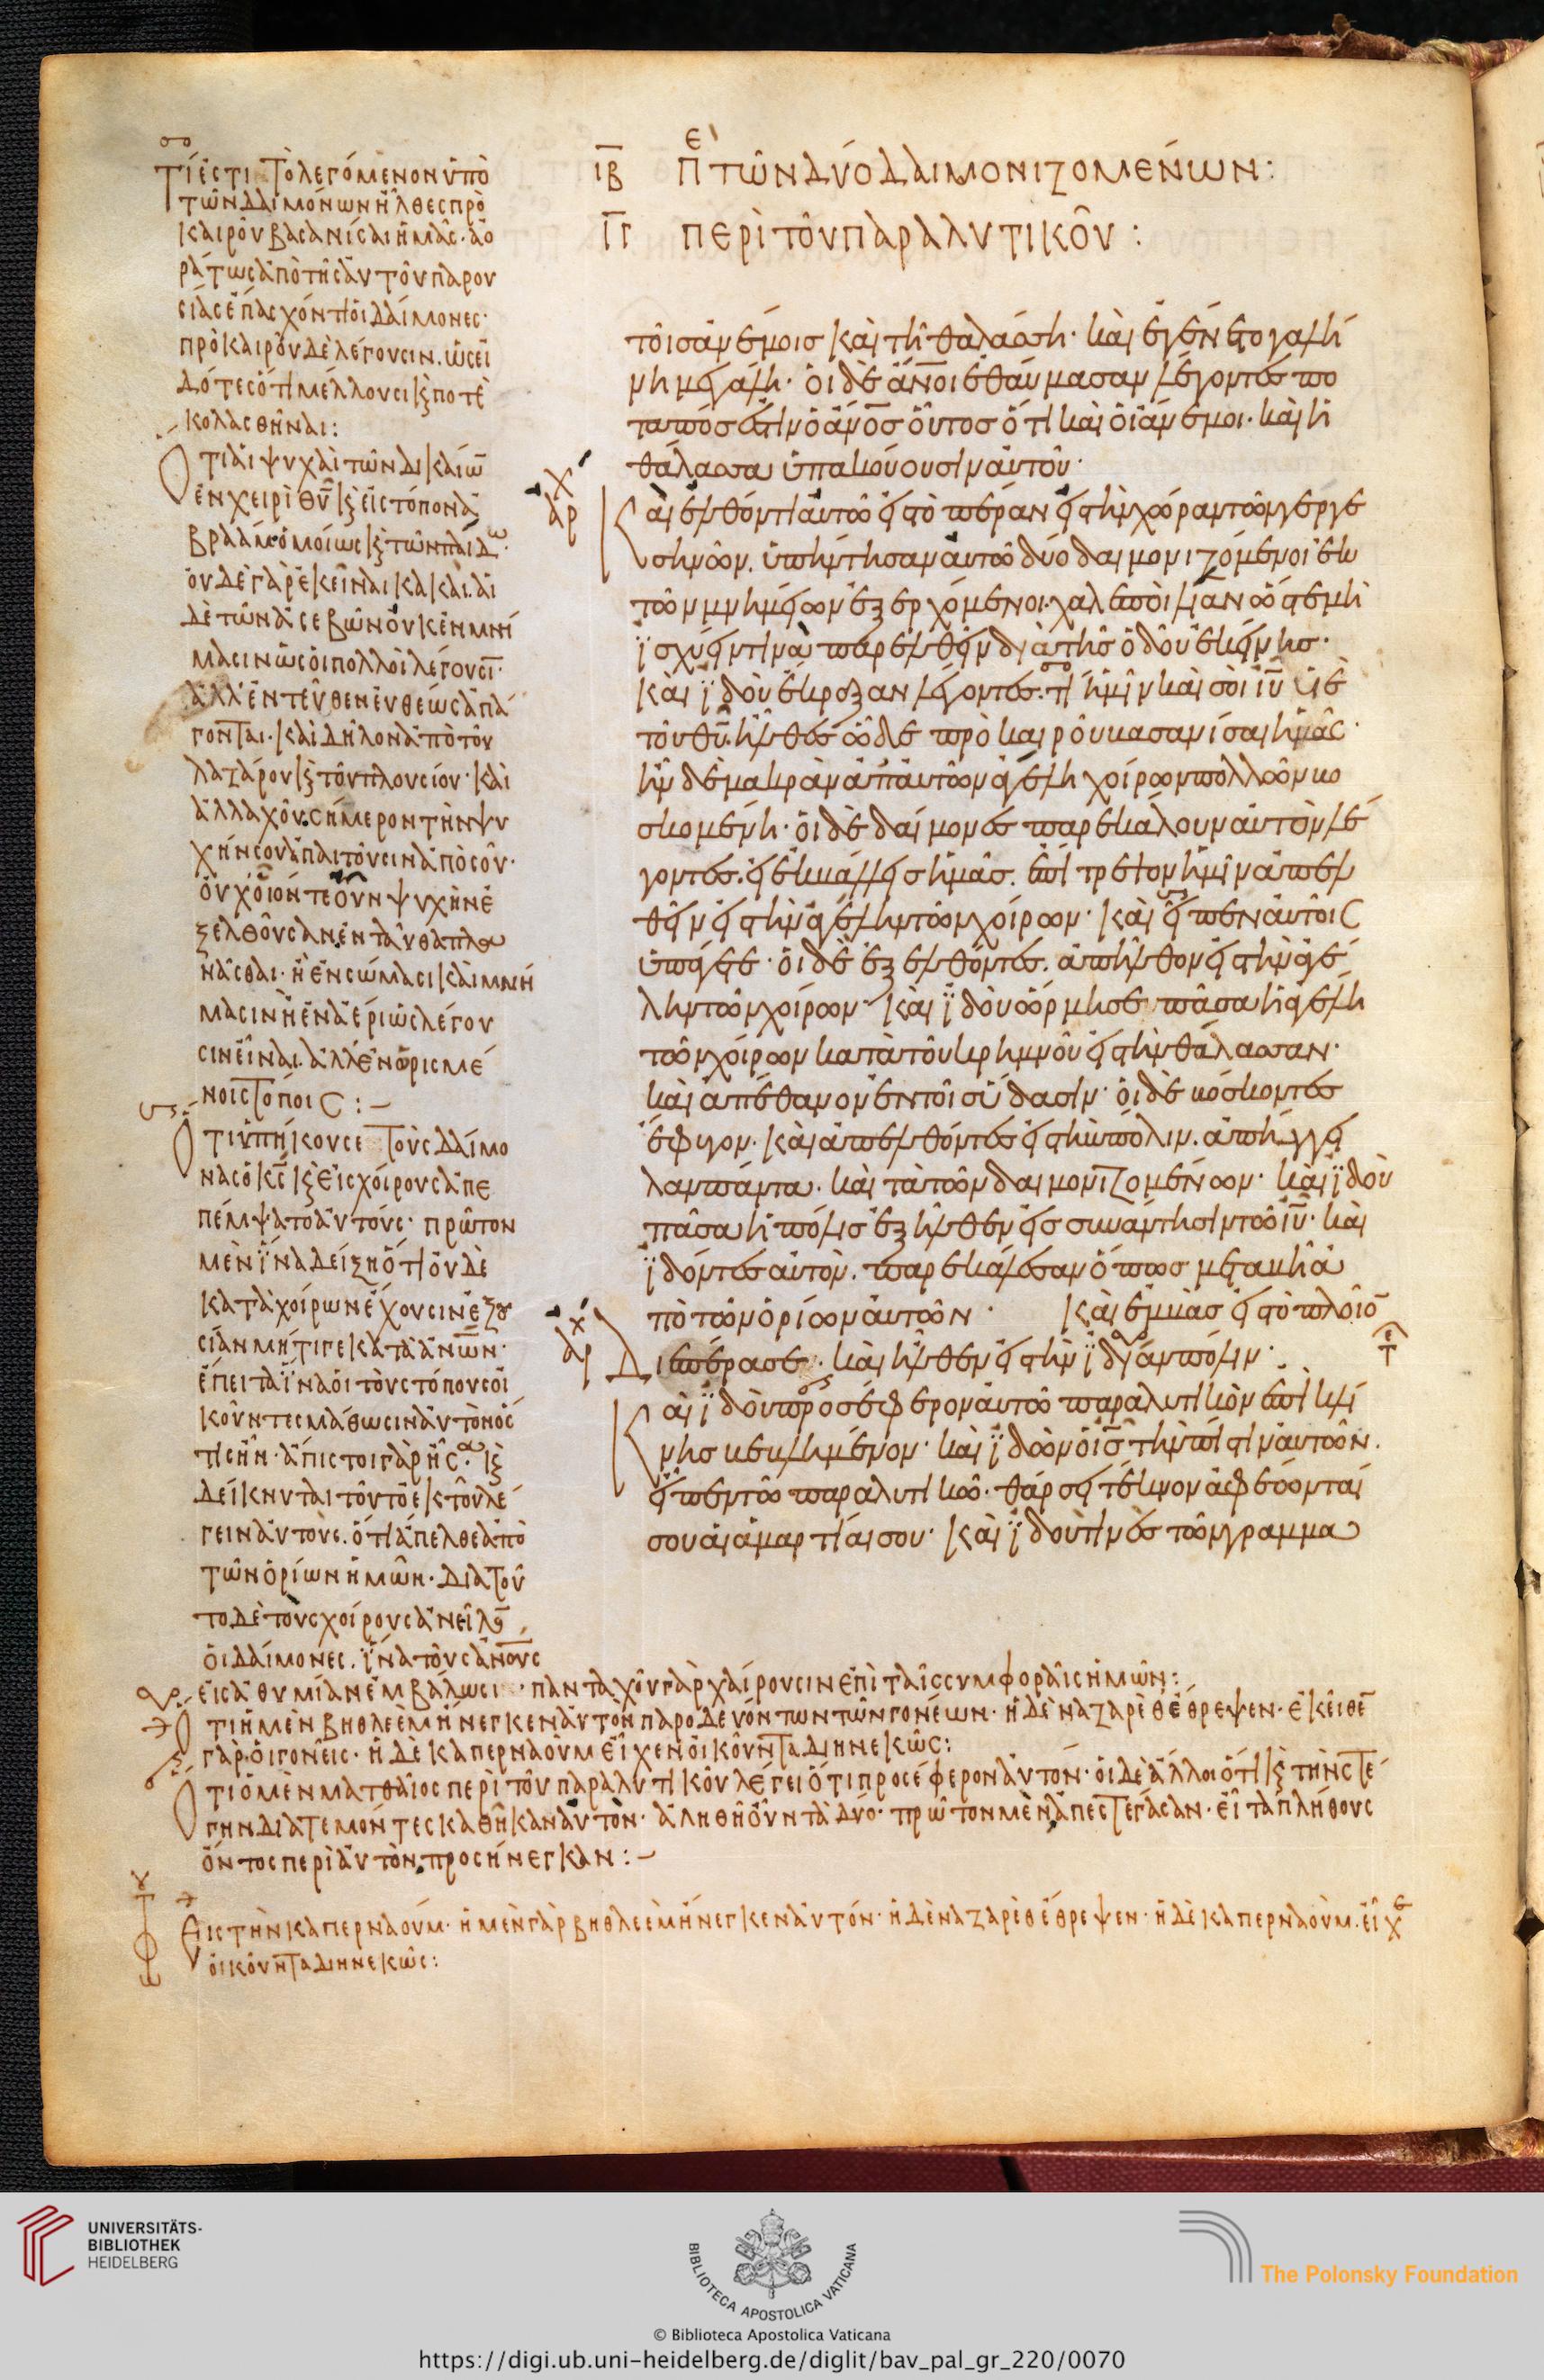 ιβ πε τῶν δύο δαιμονιζομένων:
ιγ περὶ τοῦ παραλυτικοῦ:
τί ἐστι τὸ λεγόμενον ὑπὸ
τῶν δαιμόνων ἦλθες πρὸ
καιροῦ βασανίσαι ἡμᾶς· ἀο
ράτως ἀπὸ τῆς αὐτοῦ παρου
σίας ἔπασχόν τι οἱ δαίμονες·
πρὸ καιροῦ δὲ λέγουσιν. ὡς εἰ
δότες ὅτι μέλλουσι κ ποτὲ
κολασθῆναι:
Ὅτι αἱ ψυχαὶ τῶν δικαίω
ἐν χειρὶ θυ κ εἰς τόπον ἀ
βραάμ· ὁμοίως κ τῶν παίδω·
οὐδὲ γὰρ ἐκεῖναι κακαί. αἱ
δὲ τῶν ἀσεβῶν οὐκ ἐν μνή
μασιν ὡς οἱ πολλοὶ λέγουσι·
ἀλλ' ἐντεῦθεν εὐθέως ἀπά
γονται. καὶ δῆλον ἀπὸ τοῦ
λαζάρου κ τοῦ πλουσίου· καὶ
ἀλλαχοῦ. σήμερον τὴν ψυ
χήν σου ἀπαιτοῦσιν ἀπὸ σοῦ·
οὐχ οἷόν τε οὖν ψυχὴν ἐ
ξελθοῦσαν ἐνταῦθα πλα
νᾶσθαι. ἢ ἐν σώμασι καὶ μνή
μασιν ἢ ἐν ἀέρι ὡς λέγου
σιν εἶναι. ἀλλ' ἐν ὡρισμέ
νοις τόποις:
Ὅτι ὑπήκουσε τοὺς δαίμο
νας ὁ κς κ εἰς χοίρους ἀπε
πέμψατο αὐτούς· πρῶτον
μὲν ἵνα δείξη ὅτι οὐδὲ
κατὰ χοίρων ἔχουσιν ἐξου
σίαν μήτιγε κατὰ ἀνων·
ἔπειτα ἵνα οἱ τοὺς τόπους οἰ
κοῦντες μάθωσιν αὐτὸν ὅς
τις ἦν· ἄπιστοι γὰρ ἦσα· κ
δείκνυται τοῦτο ἐκ τοῦ λέ
γειν αὐτούς. ὅτι ἄπελθε ἀπὸ
τῶν ὁρίων ἡμῶν. διὰ τοῦ
το δὲ τοὺς χοίρους ἀνεῖλο
οἱ δαίμονες. ἵνα τοὺς ἀνους
εἰς ἀθυμίαν ἐμβάλωσι· πανταχοῦ γὰρ χαίρουσιν ἐπὶ ταῖς συμφοραῖς ἡμῶν:
Ὅτι ἡ μὲν βηθλεὲμ ἤνεγκεν αὐτὸν παροδευόντων τῶν γονέων· ἡ δὲ ναζαρὲθ ἔθρεψεν. ἐκεῖθε
γὰρ οἱ γονεῖς· ἡ δὲ καπερναοὺμ εἶχεν οἰκοῦντα διηνεκῶς:
Ὅτι ὁ μὲν ματθαῖος περὶ τοῦ παραλυτικοῦ λέγει ὅτι προσέφερον αὐτόν· οἱ δὲ ἄλλοι ὅτι κ τὴν στέ
γην διατεμόντες καθῆκαν αὐτὸν· ἀληθῆ οὖν τὰ δύο· πρῶτον μὲν ἀπεστέγασαν· εἶτα πλήθους
ὄντος περὶ αὐτὸν προσήνεγκαν:
Εἰς τὴν καπερναούμ· ἡ μὲν γὰρ βηθλεὲμ ἤνεγκεν αὐτόν· ἡ δὲ ναζαρὲθ ἔθρεψεν· ἡ δὲ καπερναοὺμ. εἶχε
οἰκοῦντα διηνεκῶς:
τοῖς ἀνέμοις καὶ τῇ θαλάσση· καὶ ἐγένετο γαλή
νη μεγάλη· οἱ δὲ ἄνοι ἐθαύμασαν λέγοντες πο
ταπός ἐστιν ὁ ἄνος οὗτος ὅτι καὶ οἱ ἄνεμοι. καὶ ἡ
θάλασσα ὑπακούουσιν αὐτοῦ·
Καὶ ἐλθόντι αὐτῶ εἰς τὸ πέραν εἰς τὴν χώραν τῶν γεργε
σηνῶν. ὑπήντησαν αὐτῶ δύο δαιμονιζόμενοι ἐκ
τῶν μνημείων ἐξερχόμενοι. χαλεποὶ λίαν ὥστε μὴ
ἰσχύειν τινὰ παρελθεῖν διὰ τῆς ὁδοῦ ἐκείνης·
καὶ ἰδοὺ ἔκραξαν λέγοντες. τί ἡμῖν καὶ σοὶ ιυ υἱὲ
τοῦ θυ. ἦλθες ὧδε πρὸ καιροῦ βασανίσαι ἡμᾶς·
ἦν δὲ μακρὰν ἀπ' αὐτῶν ἀγέλη χοίρων πολλῶν βο
σκομένη· οἱ δὲ δαίμονες παρεκάλουν αὐτὸν λέ
γοντες. εἰ ἐκβάλλεις ἡμᾶς. ἐπίτρεψον ἡμῖν ἀπελ
θεῖν εἰς τὴν ἀγέλην τῶν χοίρων· καὶ εἶπεν αὐτοῖς
ὑπάγετε· οἱ δὲ ἐξελθόντες. ἀπῆλθον εἰς τὴν ἀγέ
λην τῶν χοίρων· καὶ ἰδοὺ ὥρμησε πᾶσα ἡ ἀγέλη
τῶν χοίρων κατὰ τοῦ κρημνοῦ εἰς τὴν θάλασσαν·
καὶ ἀπέθανον ἐν τοῖς ὕδασιν· οἱ δὲ βόσκοντες
ἔφυγον. καὶ ἀπελθόντες εἰς τὴν πόλιν. ἀπήγγει
λαν πάντα. καὶ τὰ τῶν δαιμονιζομένων· καὶ ἰδοὺ
πᾶσα ἡ πόλις ἐξῆλθεν εἰς συνάντησιν τῶ ιυ· καὶ
ἰδόντες αὐτὸν. παρεκάλεσαν ὅπως μεταβῆ ἀ
πὸ τῶν ὁρίων αὐτῶν· καὶ ἐμβὰς εἰς τὸ πλοῖο
Διεπέρασε· καὶ ἦλθεν εἰς τὴν ἰδίαν πόλιν·
Καὶ ἰδοὺ προσέφερον αὐτῶ παραλυτικὸν ἐπὶ κλί
νης βεβλημένον· καὶ ἰδὼν ὁ ις τὴν πίστιν αὐτῶν.
εἶπεν τῶ παραλυτικῶ· θάρσει τέκνον ἀφέωνταί
σου αἱ ἁμαρτίαι σου· καὶ ἰδού τινὲς τῶν γραμμα
UNIVERSITÄTS-
BIBLIOTHEK
HEIDELBERG
BIBLIOTECA APOSTOLICA VATICANA
The Polonsky Foundation
© Biblioteca Apostolica Vaticana
https://digi.ub.uni-heidelberg.de/diglit/bav_pal_gr_220/0070